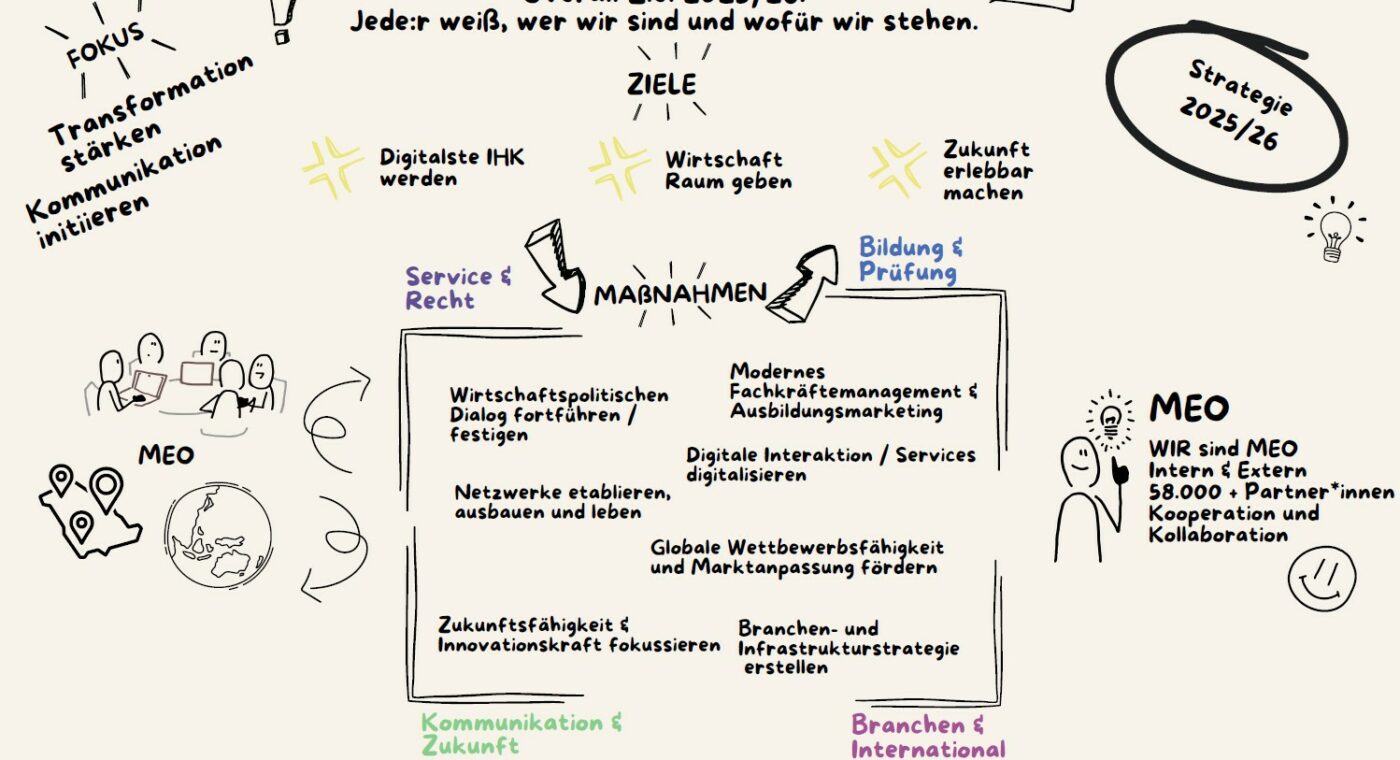 Jede:r weiß, wer wir sind und wofür wir stehen.
FOKUS
Transformation
stärken
Kommunikation
initiieren
ZIELE
Strategie
2025/26
Digitalste IHK
werden
Wirtschaft
Raum geben
Zukunft
erlebbar
machen
Service &
Recht
MAßNAHMEN
Bildung &
Prüfung
Wirtschaftspolitischen
Dialog fortführen /
festigen
Modernes
Fachkräftemanagement &
Ausbildungsmarketing
Digitale Interaktion / Services
digitalisieren
Netzwerke etablieren,
ausbauen und leben
Globale Wettbewerbsfähigkeit
und Marktanpassung fördern
Zukunftsfähigkeit &
Innovationskraft fokussieren
Branchen- und
Infrastrukturstrategie
erstellen
MEO
MEO
WIR sind MEO
Intern & Extern
58.000 + Partner*innen
Kooperation und
Kollaboration
Kommunikation &
Zukunft
Branchen &
International